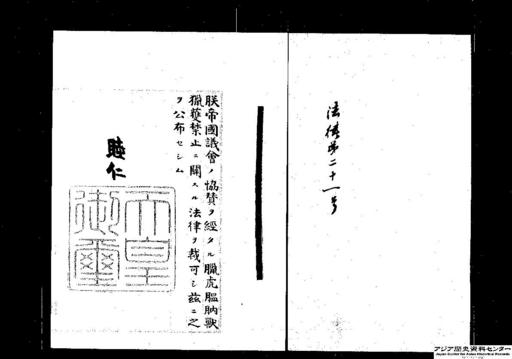 法律第二十一号
朕帝國議會ノ協賛ヲ經タル臘虎膃肭獸
獵獲禁止ニ關スル法律ヲ裁可シ茲ニ之
ヲ公布セシム
睦仁
天皇御璽
アジア歴史資料センター
Japan Center for Asian Historical Records